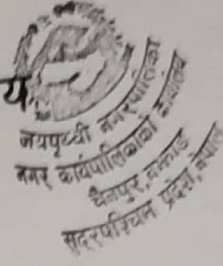 य
जयपृथ्वी नगरपालिका
नगर कार्यपालिकाको कार्यालय
चैनपुर, बझाङ
सुदूरपश्चिम प्रदेश, नेपाल